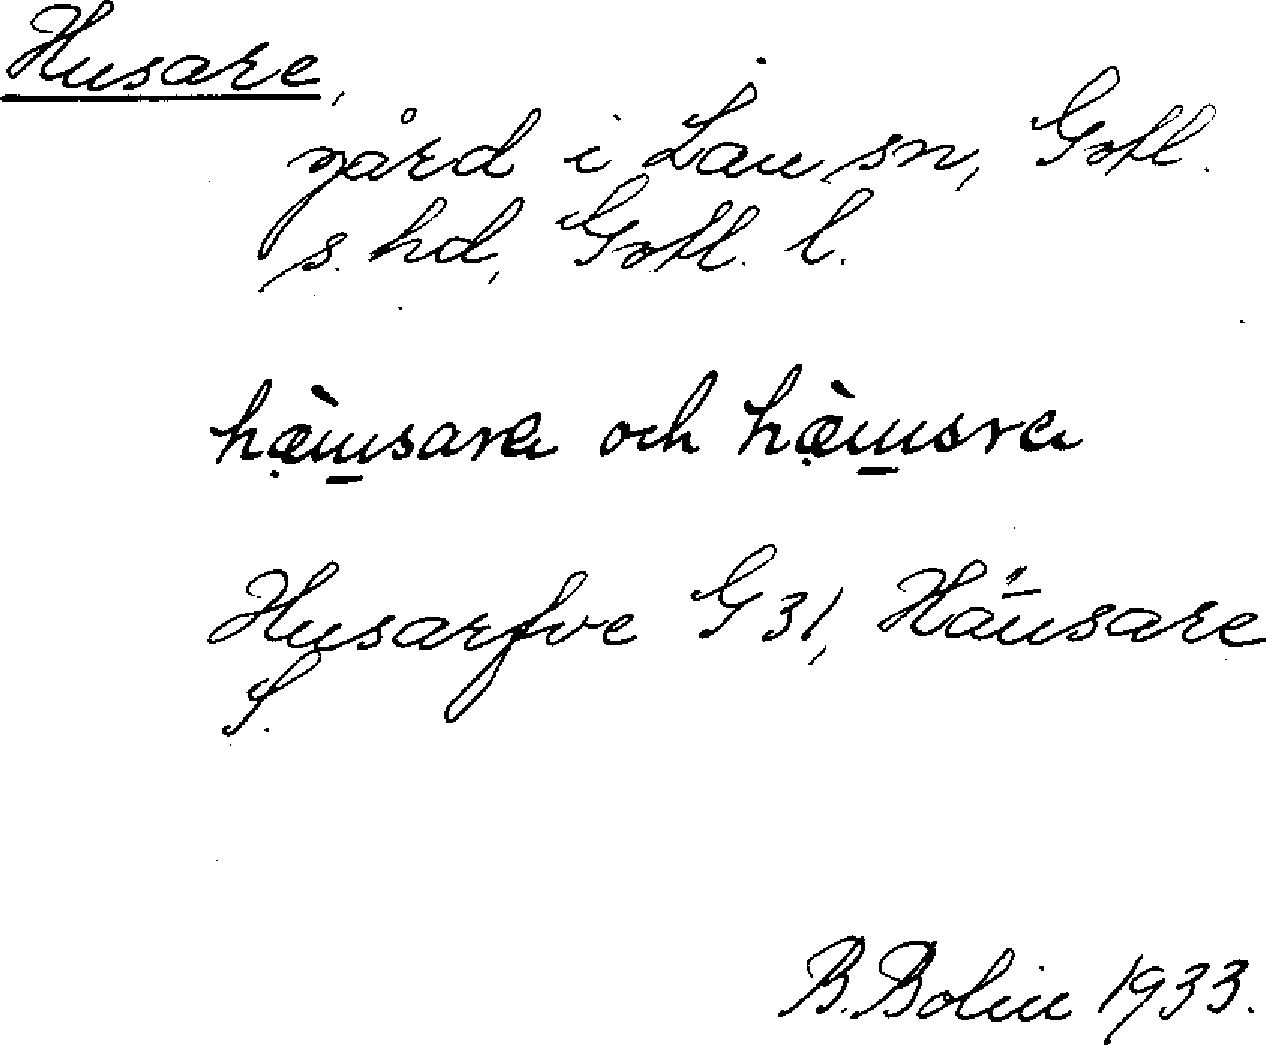 Husare,
gård i Lau sn, Gotl.
s. hd, Gotl. l.
hæ̀u̲sara och hæ̀u̲sra
Husarfve G 31, Häusare
S.
B. Bolin 1933.